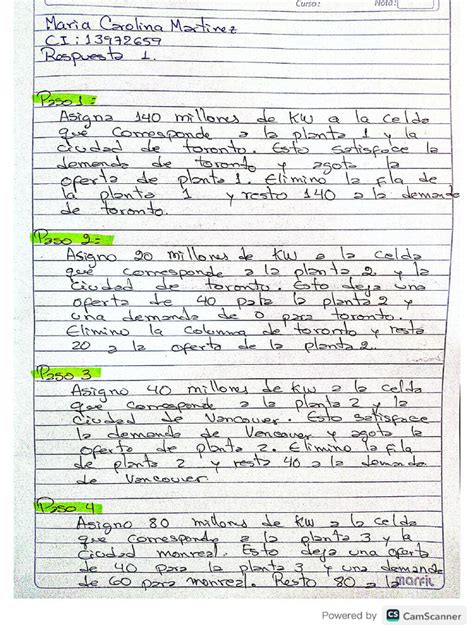 Curso: Nota:
Maria Carolina Martinez
C.I: 13972659
Respuesta 1.
Paso 1:
Asigna 140 millones de KW a la celda
que corresponde a la planta 1 y la
ciudad de toronto. Esto satisface la
demanda de toronto y agota la
oferta de planta 1. Elimino la fila de
la planta 1 y resto 140 a la demanda
de toronto.
Paso 2:
Asigno 20 millones de KW a la celda
que corresponde a la planta 2 y la
ciudad de toronto. Esto deja una
oferta de 40 para la planta 2 y
una demanda de 0 para toronto.
Elimino la columna de toronto y resto
20 a la oferta de la planta 2.
Paso 3
Asigno 40 millones de KW a la celda
que corresponde a la planta 2 y la
ciudad de Vancouver. Esto satisface
la demanda de Vancouver y agota la
oferta de planta 2. Elimino la fila
de planta 2 y resto 40 a la demanda
de Vancouver
Paso 4
Asigno 80 millones de KW a la celda
que corresponde a la planta 3 y la
ciudad monreal. Esto deja una oferta
de 40 para la planta 3 y una demanda
de 60 para monreal. Resto 80 a la
marfil
Powered by CS CamScanner